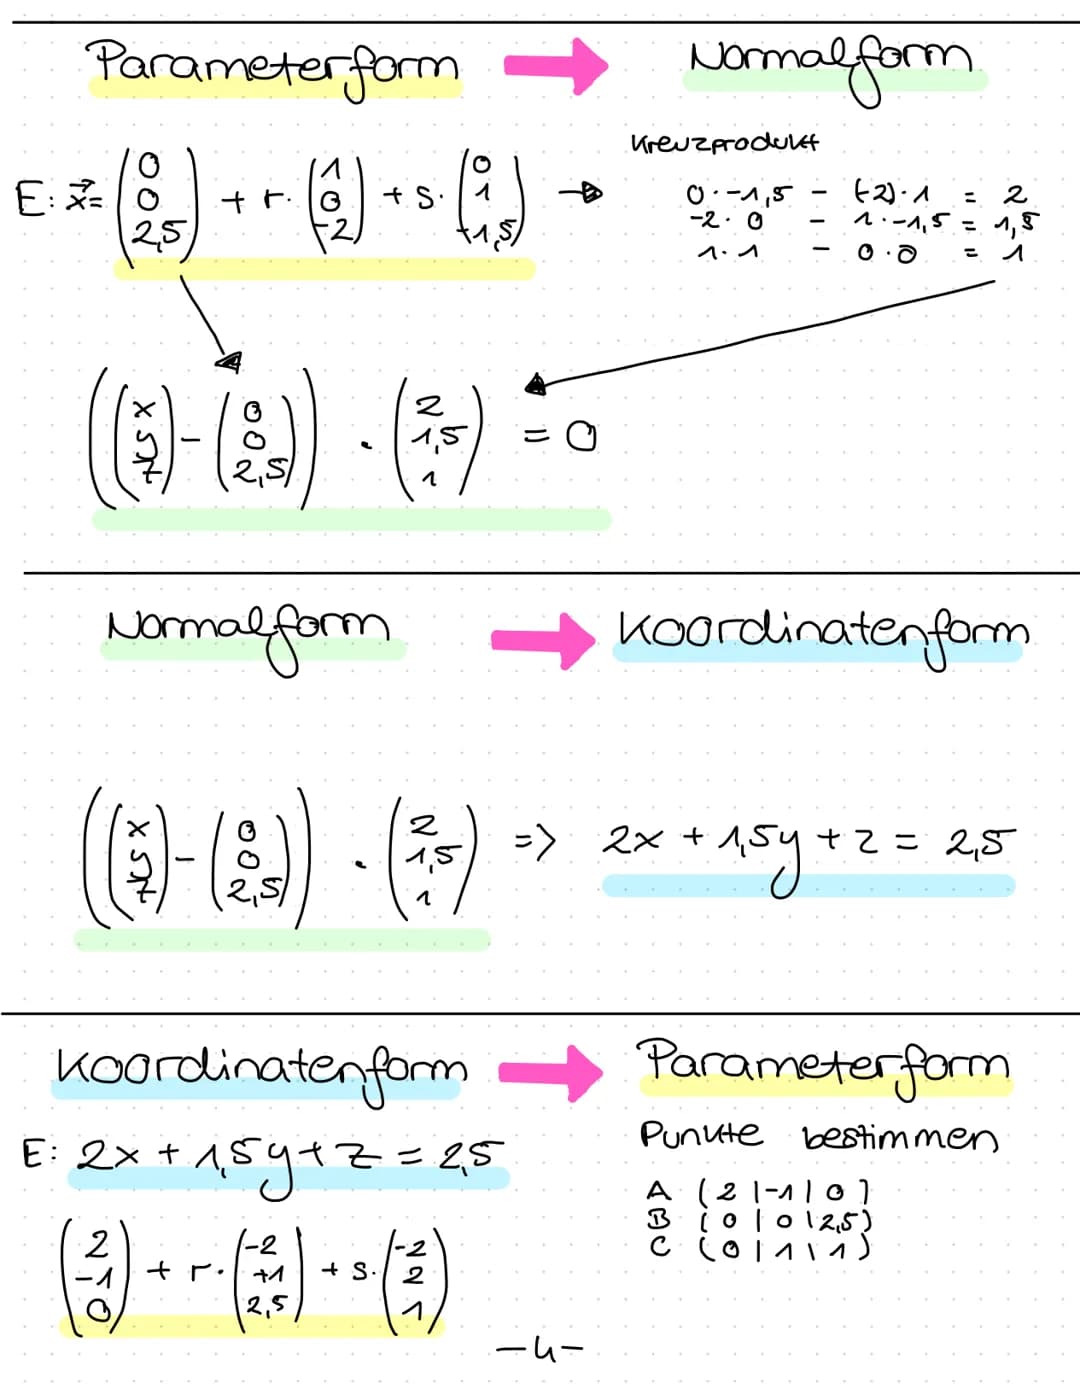 Parameterform → Normalform
Kreuzprodukt
E: x⃗ = (0 0 2,5) + r · (1 0 -2) + s · (0 1 -1,5) →
0 · -1,5 - (-2) · 1 = 2
-2 · 0 - 1 · -1,5 = 1,5
1 · 1 - 0 · 0 = 1
((x y z) - (0 0 2,5)) · (2 1,5 1) = 0
Normalform → Koordinatenform
((x y z) - (0 0 2,5)) · (2 1,5 1) => 2x + 1,5y + z = 2,5
Koordinatenform → Parameterform
E: 2x + 1,5y + z = 2,5
(2 -1 0) + r · (-2 +1 2,5) + s · (-2 2 1)
Punkte bestimmen
A (2 | -1 | 0)
B (0 | 0 | 2,5)
C (0 | 1 | 1)
-4-